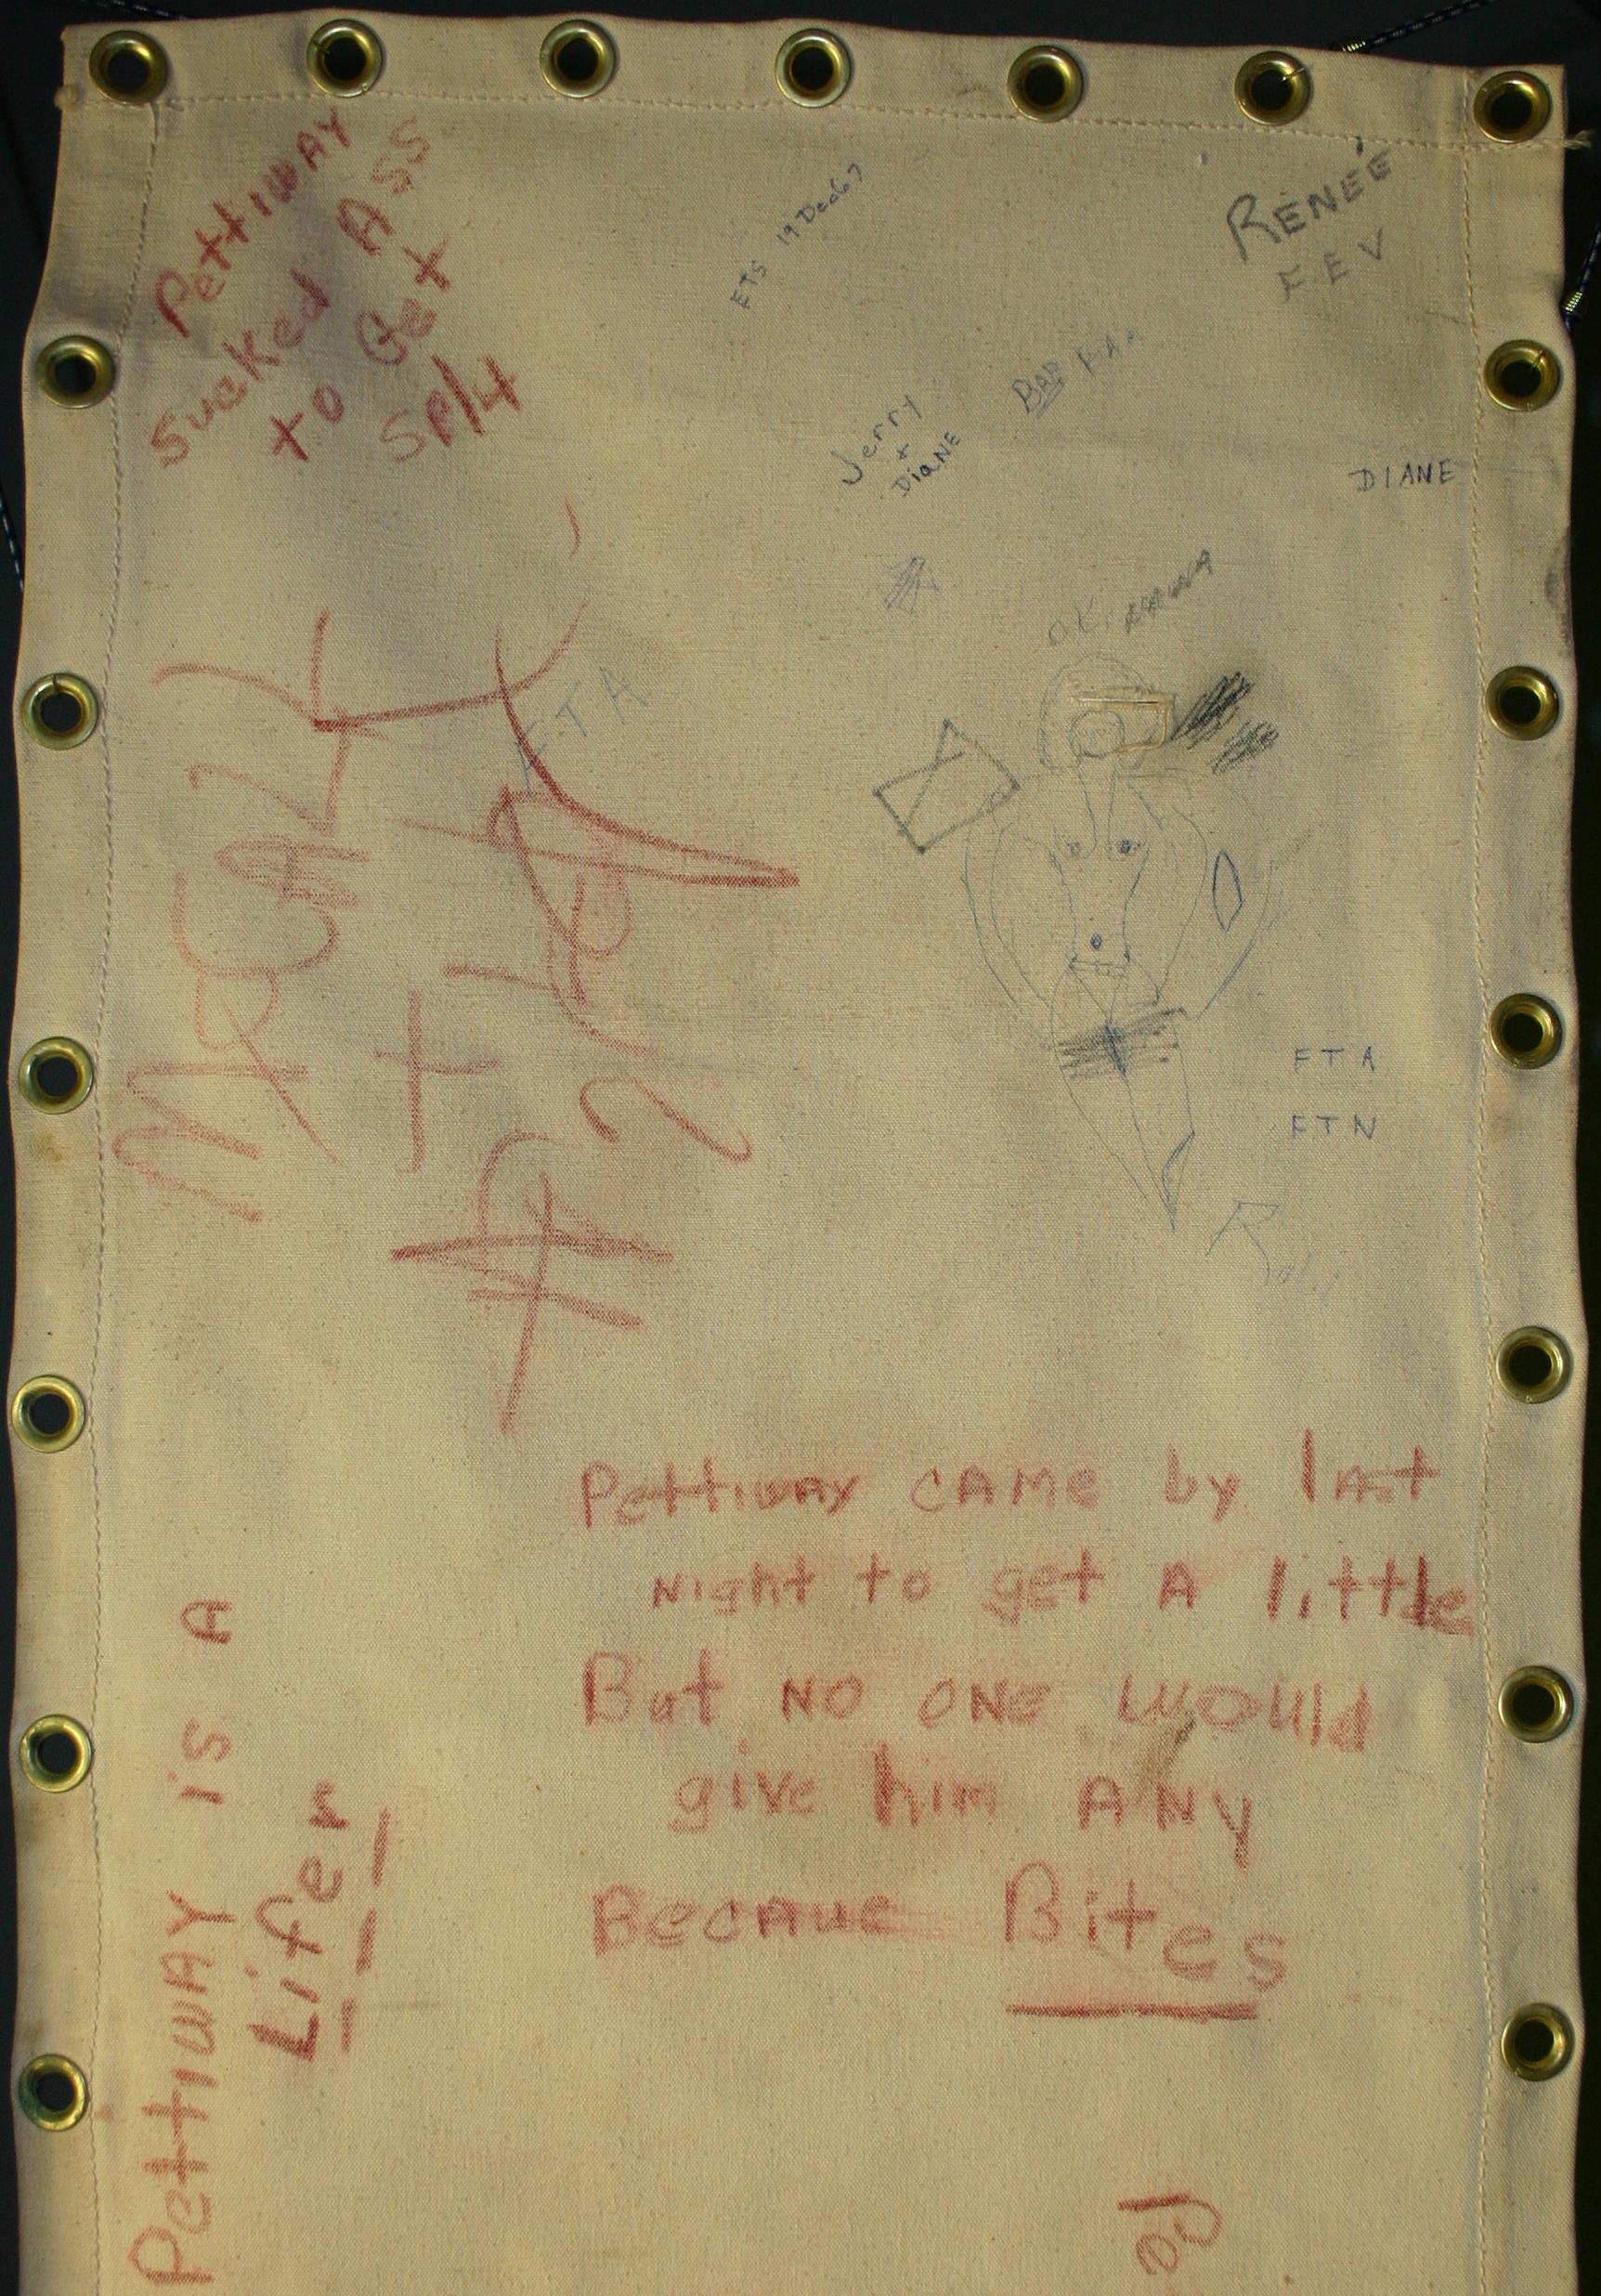 Pettiway
sucked Ass
to Get
SP/4
ETS 19 Dec 67
RENEE
Jerry
+
DiaNE
DIANE
FTA
FTA
FTN
Pettiway CAME by lAst
Night to get A little
But NO ONe would
give him ANy
BeCAue Bites
PettiwAY is A
Lifer